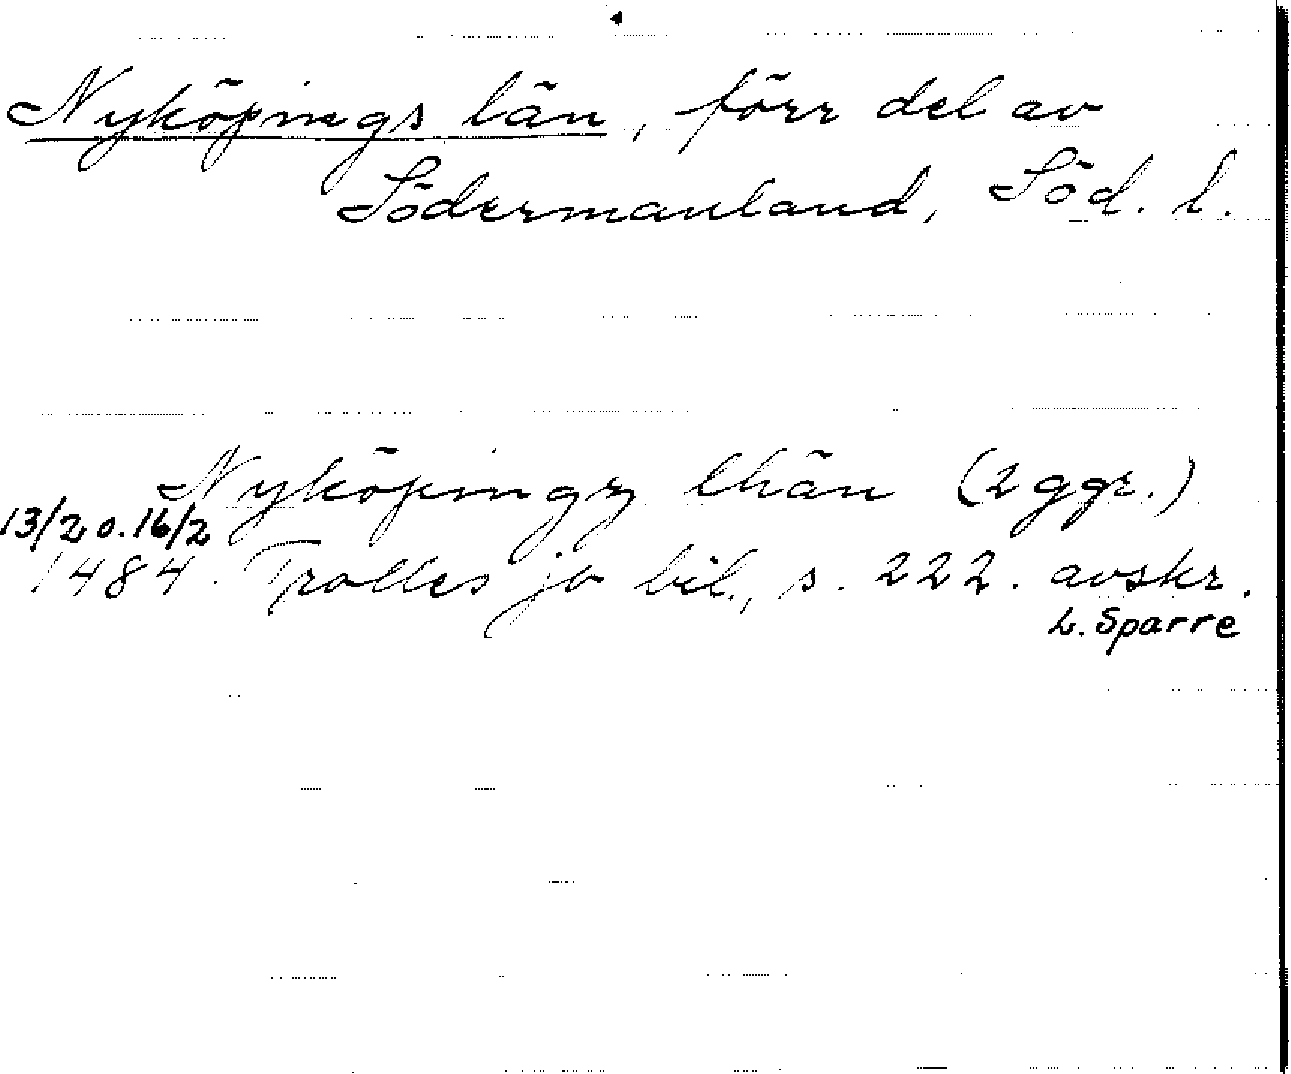 Nyköpings län, förr del av
Södermanland, Söd. l.
Nyköpingz lhän (2 ggr.)
13/2 o. 16/2
1484. Trolles jb bil., s. 222. avskr.
L. Sparre